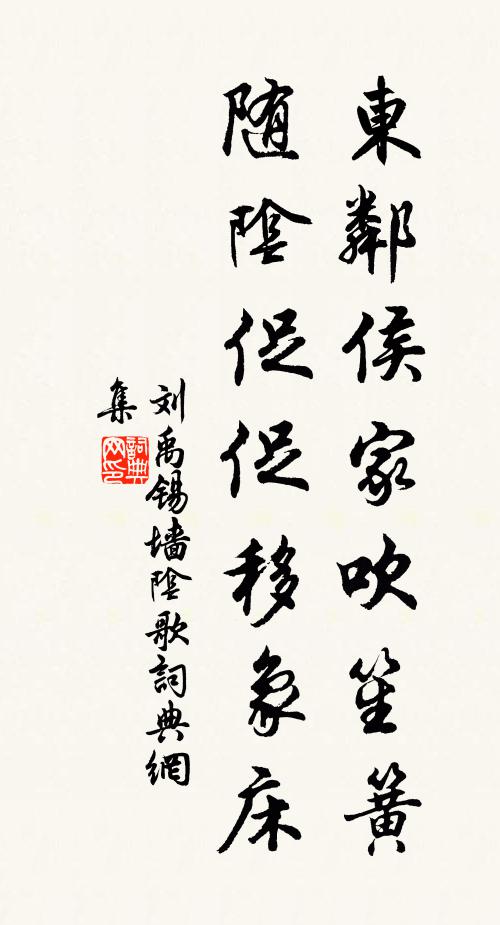 東鄰侯家吹笙簧
随陰促促移象床
刘禹锡墙陰歌詞典網
集
詞典网印